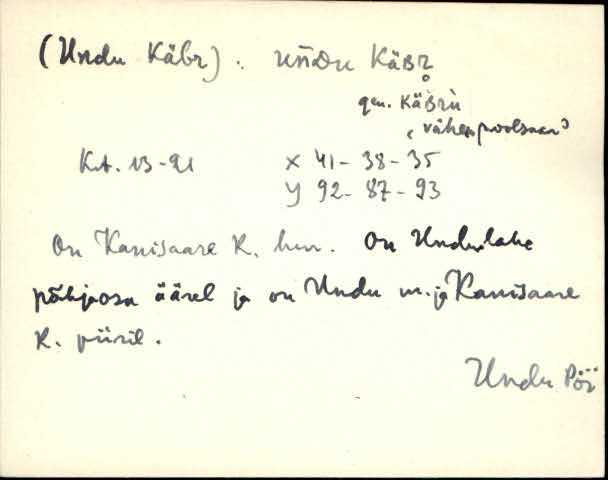 (Undu Käbr). uñdu Käʙr̥
gen. Käʙrù
„väike poolsaar”
Kt. 13-91 x 41-38-35
y 92-87-93
On Kanisaare K. hm. On Undu lahe
põhjaosa äärel ja on Undu m. ja Kanisaare
K. piiril.
Undu Pöi